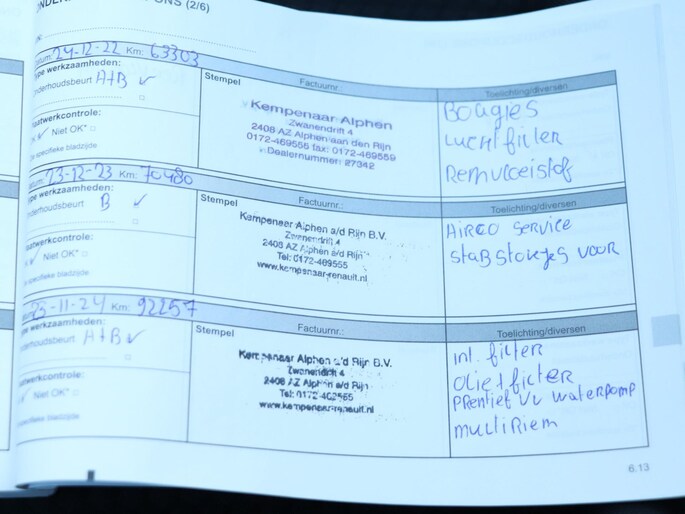 ONS (2/6)
Datum: 24-12-22 Km: 63303
Type werkzaamheden:
Onderhoudsbeurt A+B ✓
Plaatwerkcontrole:
Niet OK*
specifieke bladzijde
Stempel Factuurnr.:
Kempenaar Alphen
Zwanendrift 4
2408 AZ Alphen aan den Rijn
0172-469555 fax: 0172-469559
Dealernummer: 27342
Toelichting/diversen
Bougies
Luchtfilter
Remvloeistof
Datum: 13-12-23 Km: 70480
Type werkzaamheden:
Onderhoudsbeurt B ✓
Plaatwerkcontrole:
Niet OK*
specifieke bladzijde
Stempel Factuurnr.:
Kempenaar Alphen a/d Rijn B.V.
Zwanendrift 4
2408 AZ Alphen a/d Rijn
Tel: 0172-469555
www.kempenaar-renault.nl
Toelichting/diversen
Airco Service
stabstokjes voor
25-11-24 Km: 92257
Type werkzaamheden:
Onderhoudsbeurt A+B ✓
Plaatwerkcontrole:
Niet OK*
specifieke bladzijde
Stempel Factuurnr.:
Kempenaar Alphen a/d Rijn B.V.
Zwanendrift 4
2408 AZ Alphen a/d Rijn
Tel: 0172-469555
www.kempenaar-renault.nl
Toelichting/diversen
int. filter
olie + filter
Prentief vv waterpomp
multiriem
6.13